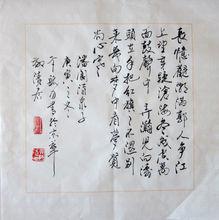 長憶觀潮滿郭人爭江
上望來疑滄海盡成空萬
面鼓聲中弄潮兒向濤
頭立手把紅旗々不濕別
來幾向夢中看夢覺
尚心寒
潘閬酒泉子
庚寅之冬
於京華